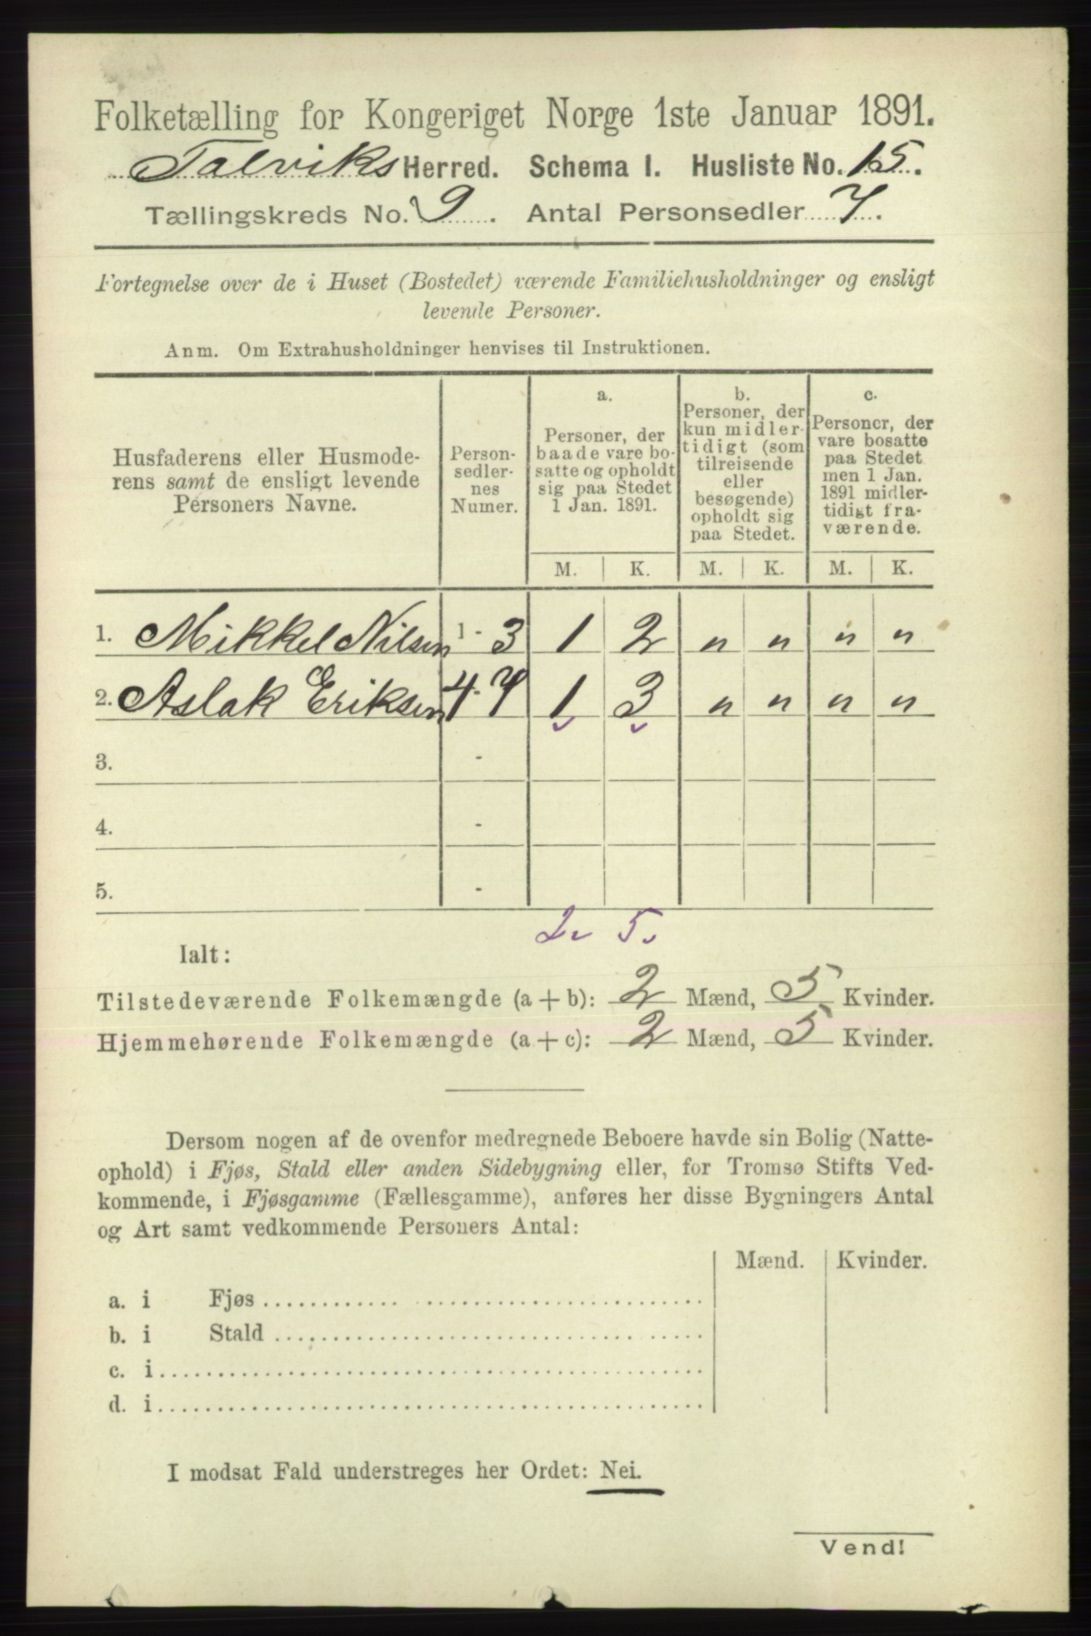 Folketælling for Kongeriget Norge 1ste Januar 1891.
Talviks Herred. Schema I. Husliste No. 15.
Tællingskreds No. 9. Antal Personsedler 7.
Fortegnelse over de i Huset (Bostedet) værende Familiehusholdninger og ensligt
levende Personer.
Anm. Om Extrahusholdninger henvises til Instruktionen.
Husfaderens eller Husmode-
rens samt de ensligt levende
Personers Navne.
Person-
sedler-
nes
Numer.
a.
Personer, der
baade vare bo-
satte og opholdt
sig paa Stedet
1 Jan. 1891.
b.
Personer, der
kun midler-
tidigt (som
tilreisende
eller
besøgende)
opholdt sig
paa Stedet.
c.
Personer, der
vare bosatte
paa Stedet
men 1 Jan.
1891 midler-
tidigt fra-
værende.
M. K. M. K. M. K.
1. Mikkel Nilsen 1 - 3 1 2 " " " "
2. Aslak Eriksen 4 - 7 1 3 " " " "
3. -
4. -
5. -
2 5
Ialt:
Tilstedeværende Folkemængde (a + b): 2 Mænd, 5 Kvinder.
Hjemmehørende Folkemængde (a + c): 2 Mænd, 5 Kvinder.
Dersom nogen af de ovenfor medregnede Beboere havde sin Bolig (Natte-
ophold) i Fjøs, Stald eller anden Sidebygning eller, for Tromsø Stifts Ved-
kommende, i Fjøsgamme (Fællesgamme), anføres her disse Bygningers Antal
og Art samt vedkommende Personers Antal:
Mænd. Kvinder.
a. i Fjøs
b. i Stald
c. i
d. i
I modsat Fald understreges her Ordet: Nei.
Vend!